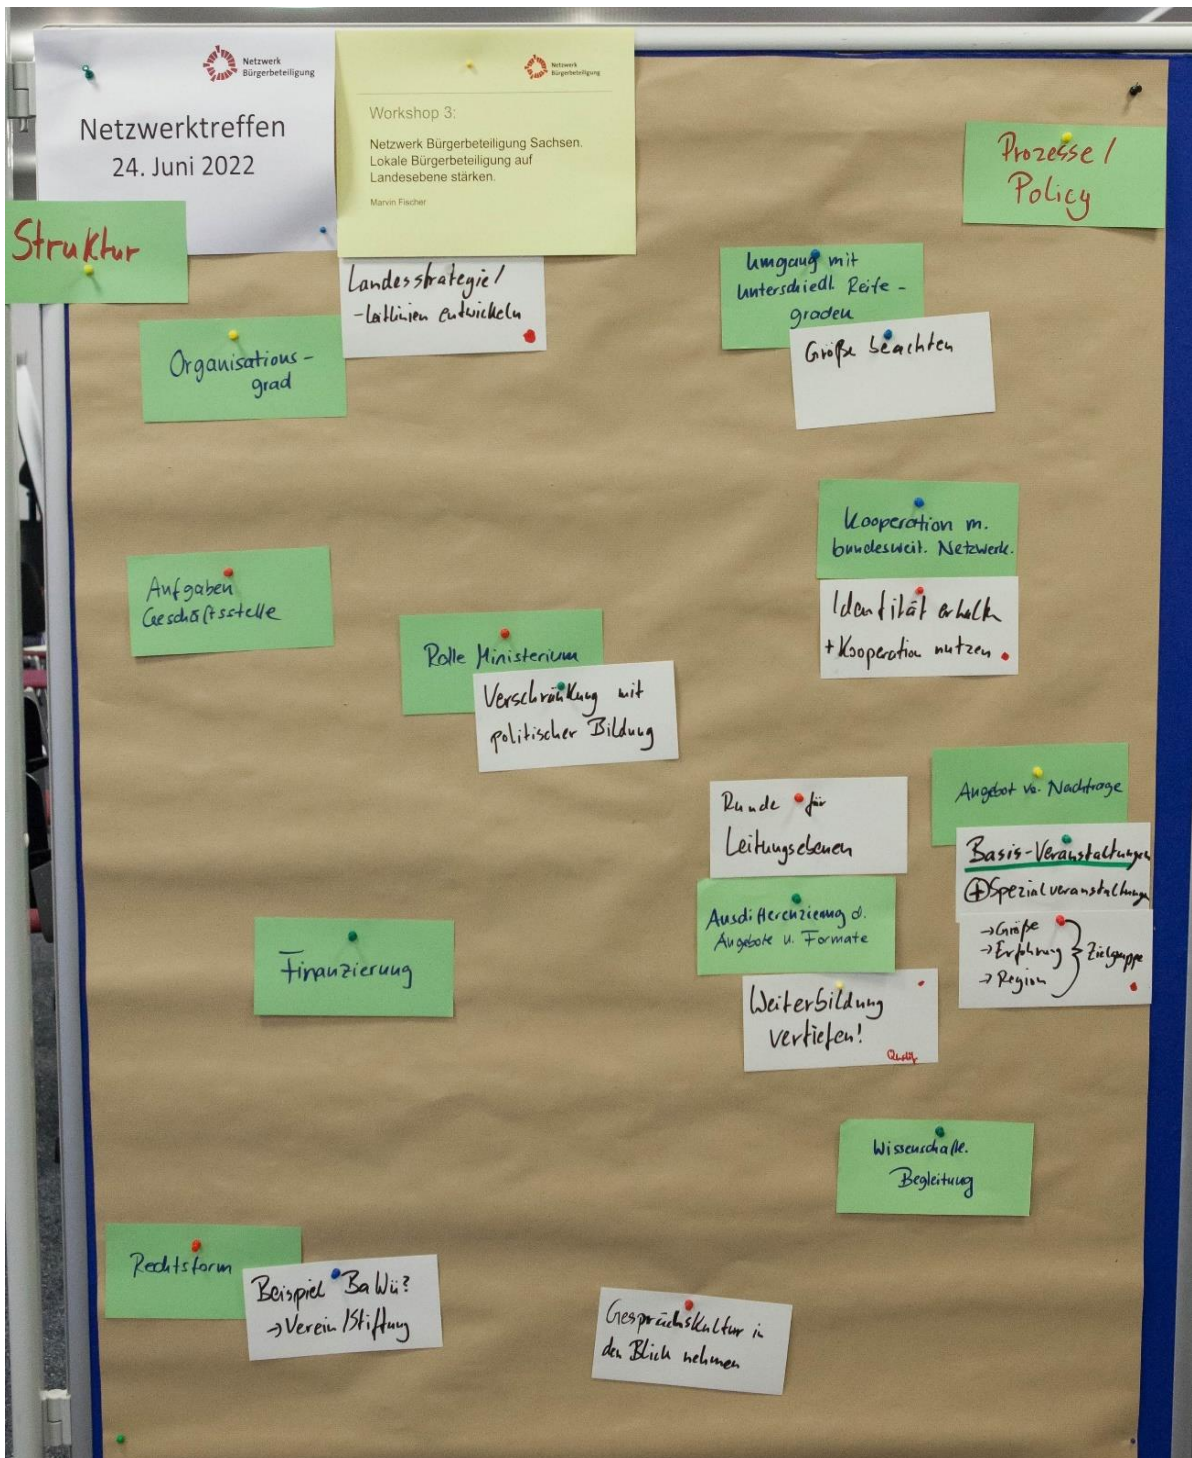 Netzwerk
Bürgerbeteiligung
Netzwerktreffen
24. Juni 2022
Netzwerk
Bürgerbeteiligung
Workshop 3:
Netzwerk Bürgerbeteiligung Sachsen.
Lokale Bürgerbeteiligung auf
Landesebene stärken.
Marvin Fischer
Struktur
Prozesse /
Policy
Landesstrategie/
-leitlinien entwickeln
Organisations-
grad
Umgang mit
unterschiedl. Reife-
graden
Größe beachten
Kooperation m.
bundesweit. Netzwerk.
Identität erhalten
+ Kooperation nutzen
Aufgaben
Geschäftsstelle
Rolle Ministerium
Verschränkung mit
politischer Bildung
Runde für
Leitungsebenen
Ausdifferenzierung d.
Angebote u. Formate
Weiterbildung
vertiefen!
Angebot vs. Nachfrage
Basis-Veranstaltungen
+ Spezialveranstaltungen
→ Größe
→ Erfahrung } Zielgruppe
→ Region
Finanzierung
Wissenschaftl.
Begleitung
Rechtsform
Beispiel BaWü?
→ Verein/Stiftung
Gesprächskultur in
den Blick nehmen